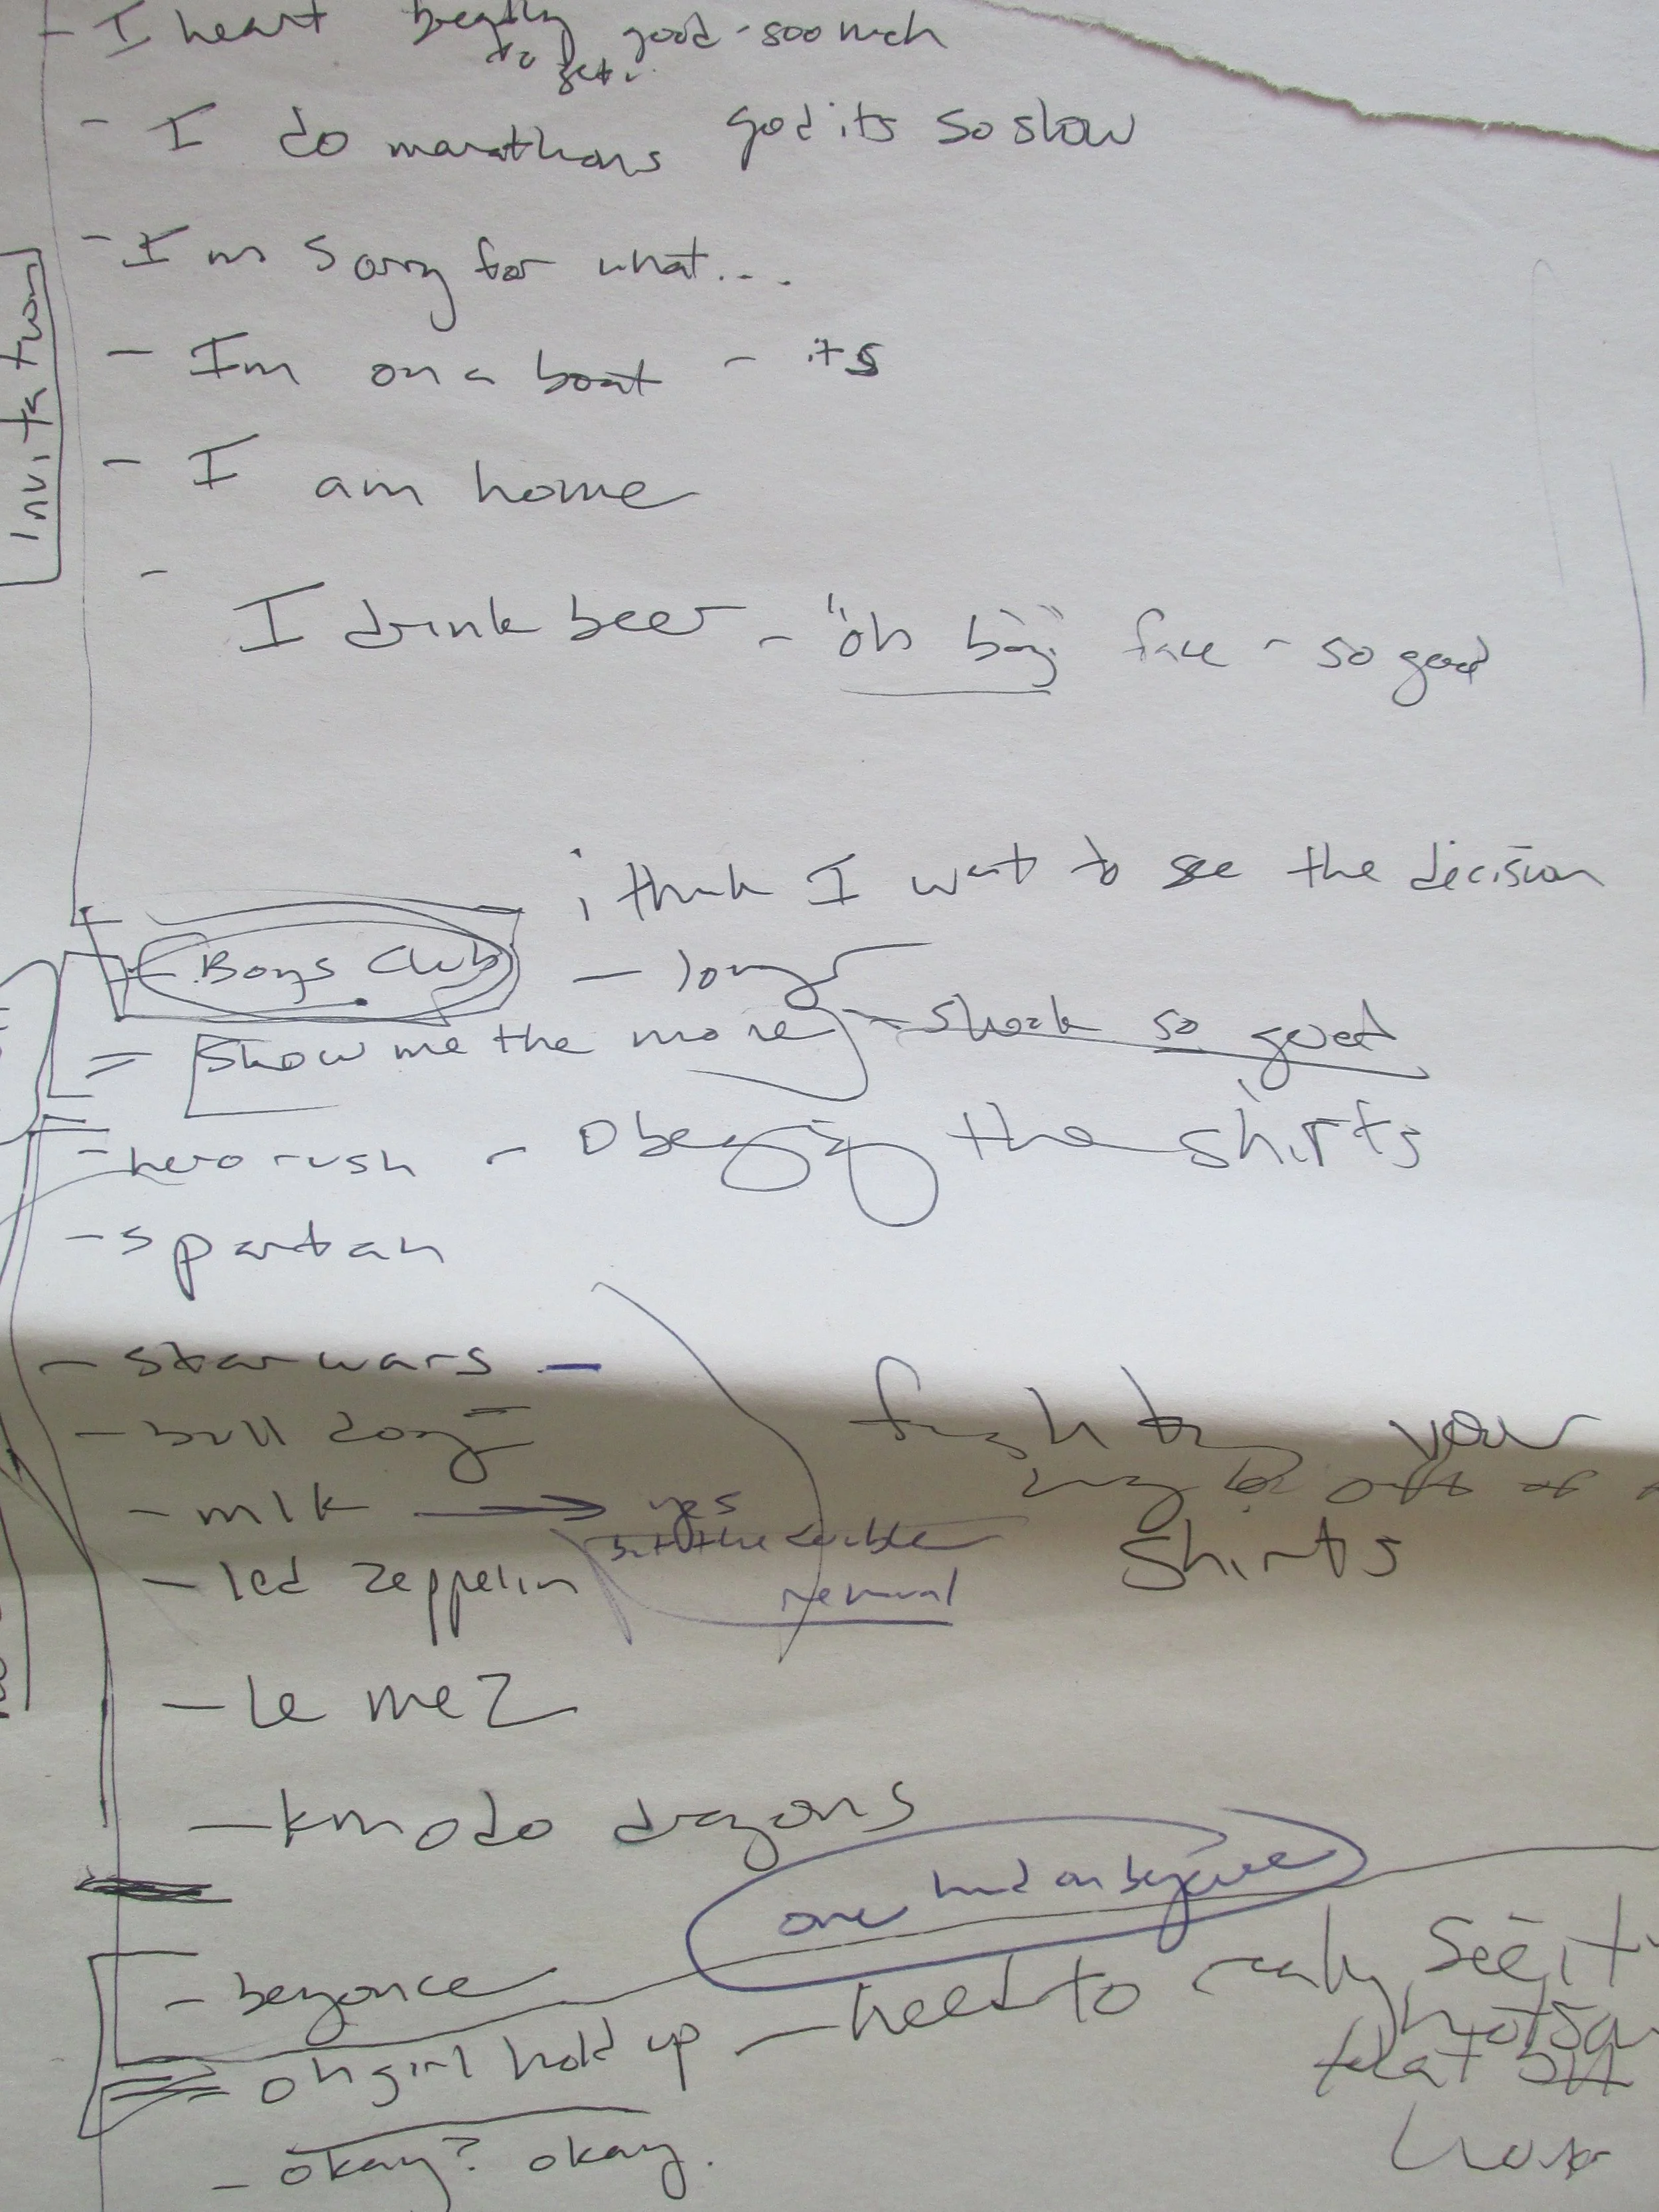 - I heart good - soo much
to get
- I do marathons god its so slow
- I'm sorry for what...
- Im on a boat - its
- I am home
-
I drink beer - "oh boy" face - so good
Invitation
i think I want to see the decision
- Boys Club - long
= Show me the money - shock so good
- hero rush - Obeying the shirts
- spartan
- star wars -
- bull dog
- mlk → yes
but the double
removal
- led zeppelin
fighting your
way off of
shirts
- le mez
- kmodo dragons
one hand on beyonce
- beyonce
= oh girl hold up - need to really see it
that
- okay? okay.